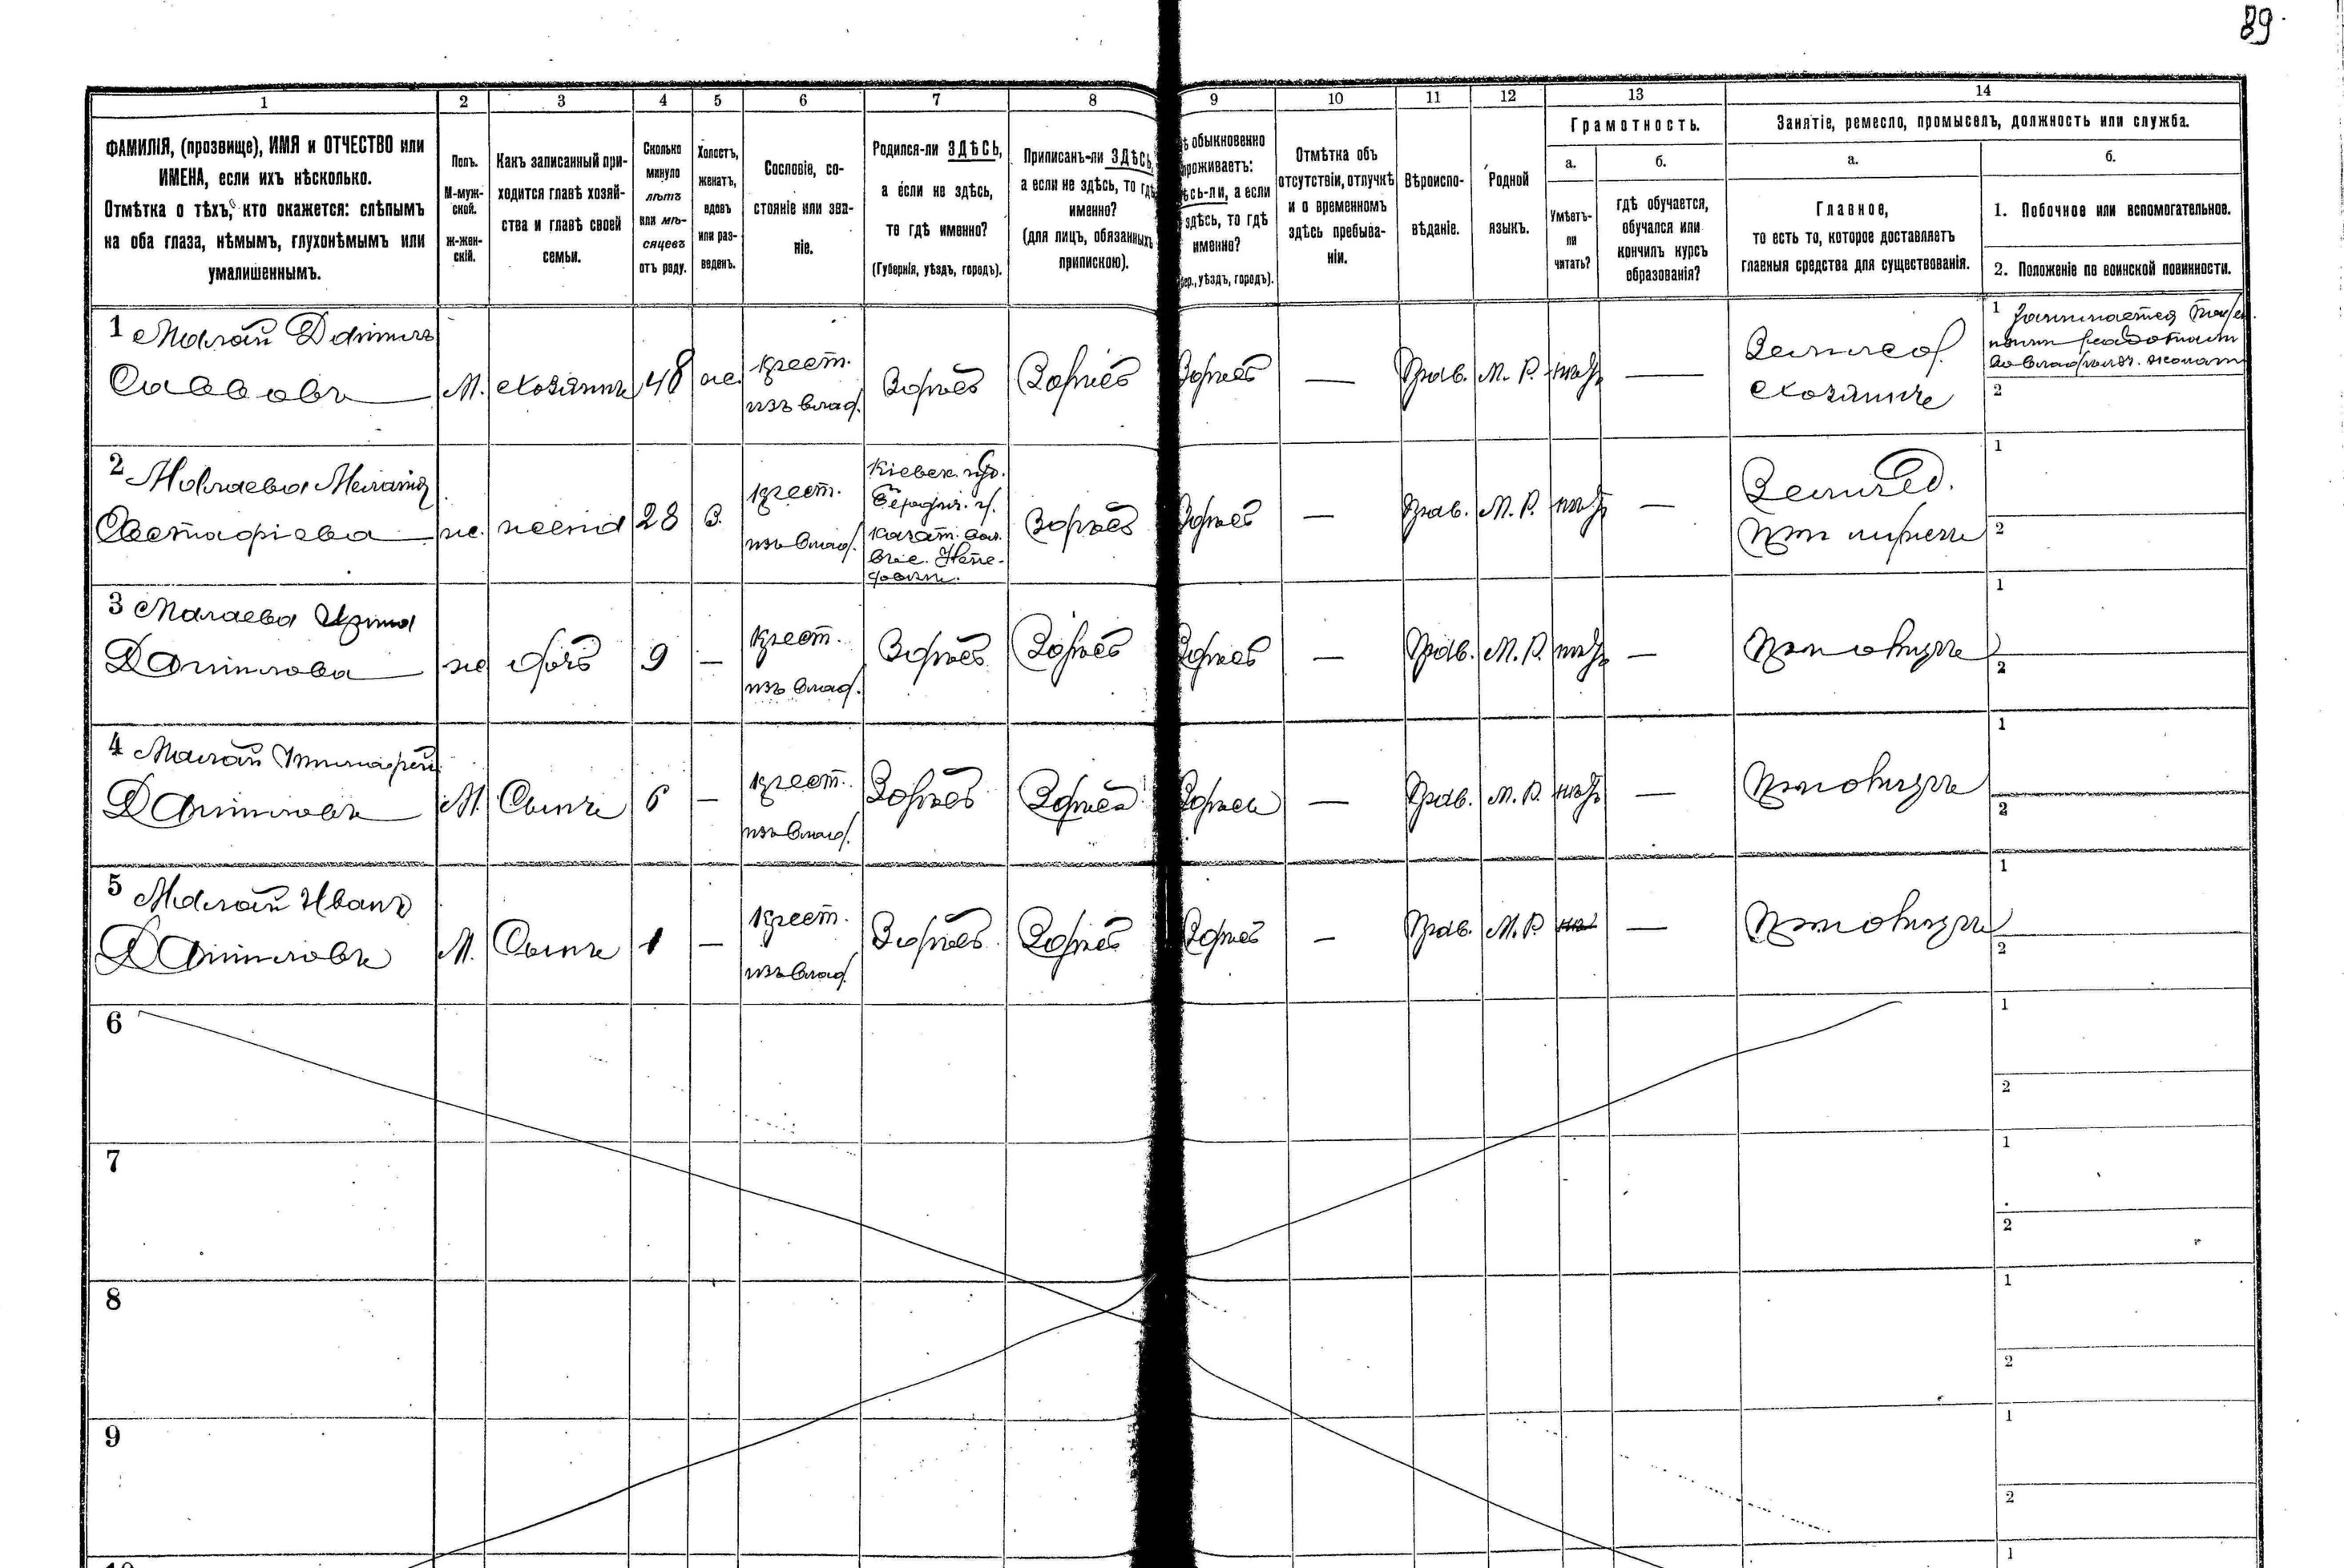 89.
1 2 3 4 5 6 7 8 9 10 11 12 13 14
ФАМИЛІЯ, (прозвище), ИМЯ и ОТЧЕСТВО или
ИМЕНА, если ихъ нѣсколько.
Отмѣтка о тѣхъ, кто окажется: слѣпымъ
на оба глаза, нѣмымъ, глухонѣмымъ или
умалишеннымъ.
Полъ.
М-муж-
ской.
Ж-жен-
скій.
Какъ записанный при-
ходится главѣ хозяй-
ства и главѣ своей
семьи.
Сколько
минуло
лѣтъ
или мѣ-
сяцевъ
отъ роду.
Холостъ,
женатъ,
вдовъ
или раз-
веденъ.
Сословіе, со-
стояніе или зва-
ніе.
Родился-ли ЗДѢСЬ,
а если не здѣсь,
то гдѣ именно?
(Губернія, уѣздъ, городъ).
Приписанъ-ли ЗДѢСЬ,
а если не здѣсь, то гдѣ
именно?
(для лицъ, обязанныхъ
припискою).
обыкновенно
проживаетъ:
здѣсь-ли, а если
здѣсь, то гдѣ
именно?
уѣздъ, городъ).
Отмѣтка объ
отсутствіи, отлучкѣ
и о временномъ
здѣсь пребыва-
ніи.
Вѣроиспо-
вѣданіе.
Родной
языкъ.
Грамотность.
а.
Умѣетъ-
ли
читать?
б.
гдѣ обучается,
обучался или
кончилъ курсъ
образованія?
Занятіе, ремесло, промыселъ, должность или служба.
а.
Главное,
то есть то, которое доставляетъ
главныя средства для существованія.
б.
1. Побочное или вспомогательное.
2. Положеніе по воинской повинности.
1 Малай Данилъ
Саввовъ
М. хозяинъ 48 ж.
крест.
изъ влад.
Здѣсь Здѣсь Здѣсь — Прав. М. Р. нѣтъ —
Земле
хозяинъ
1 Занимается
2
2 Малаева Меланія
Евстафіева
ж. жена 28 З.
крест.
изъ влад.
Кіевск. губ.
Бердич. у.
Здѣсь Здѣсь — Прав. М. Р. нѣтъ —
Землед.
при мужѣ
1
2
3 Малаева Ирина
Данилова
ж дочь 9 —
крест.
изъ влад.
Здѣсь Здѣсь Здѣсь — Прав. М. Р. нѣтъ —
при отцѣ
1
2
4 Малай
Даниловъ
М. Сынъ 6 —
крест.
изъ влад.
Здѣсь Здѣсь Здѣсь — Прав. М. Р. нѣтъ —
при отцѣ
1
2
5 Малай Иванъ
Даниловъ
М. Сынъ 1 —
крест.
изъ влад.
Здѣсь Здѣсь Здѣсь — Прав. М. Р. —
при отцѣ
1
2
6
1
2
7
1
2
8
1
2
9
1
2
1